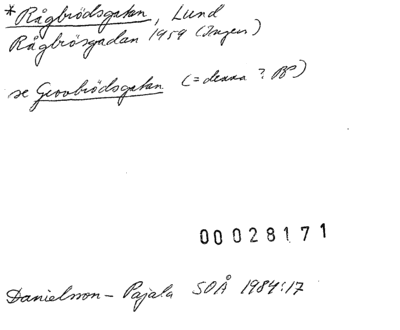 *Rågbrödsgatan, Lund
Rågbrösgadan 1959 (Ingers)
se Grovbrödsgatan (= denna ? Bo)
00028171
Danielsson - Pajala SOÅ 1984:17